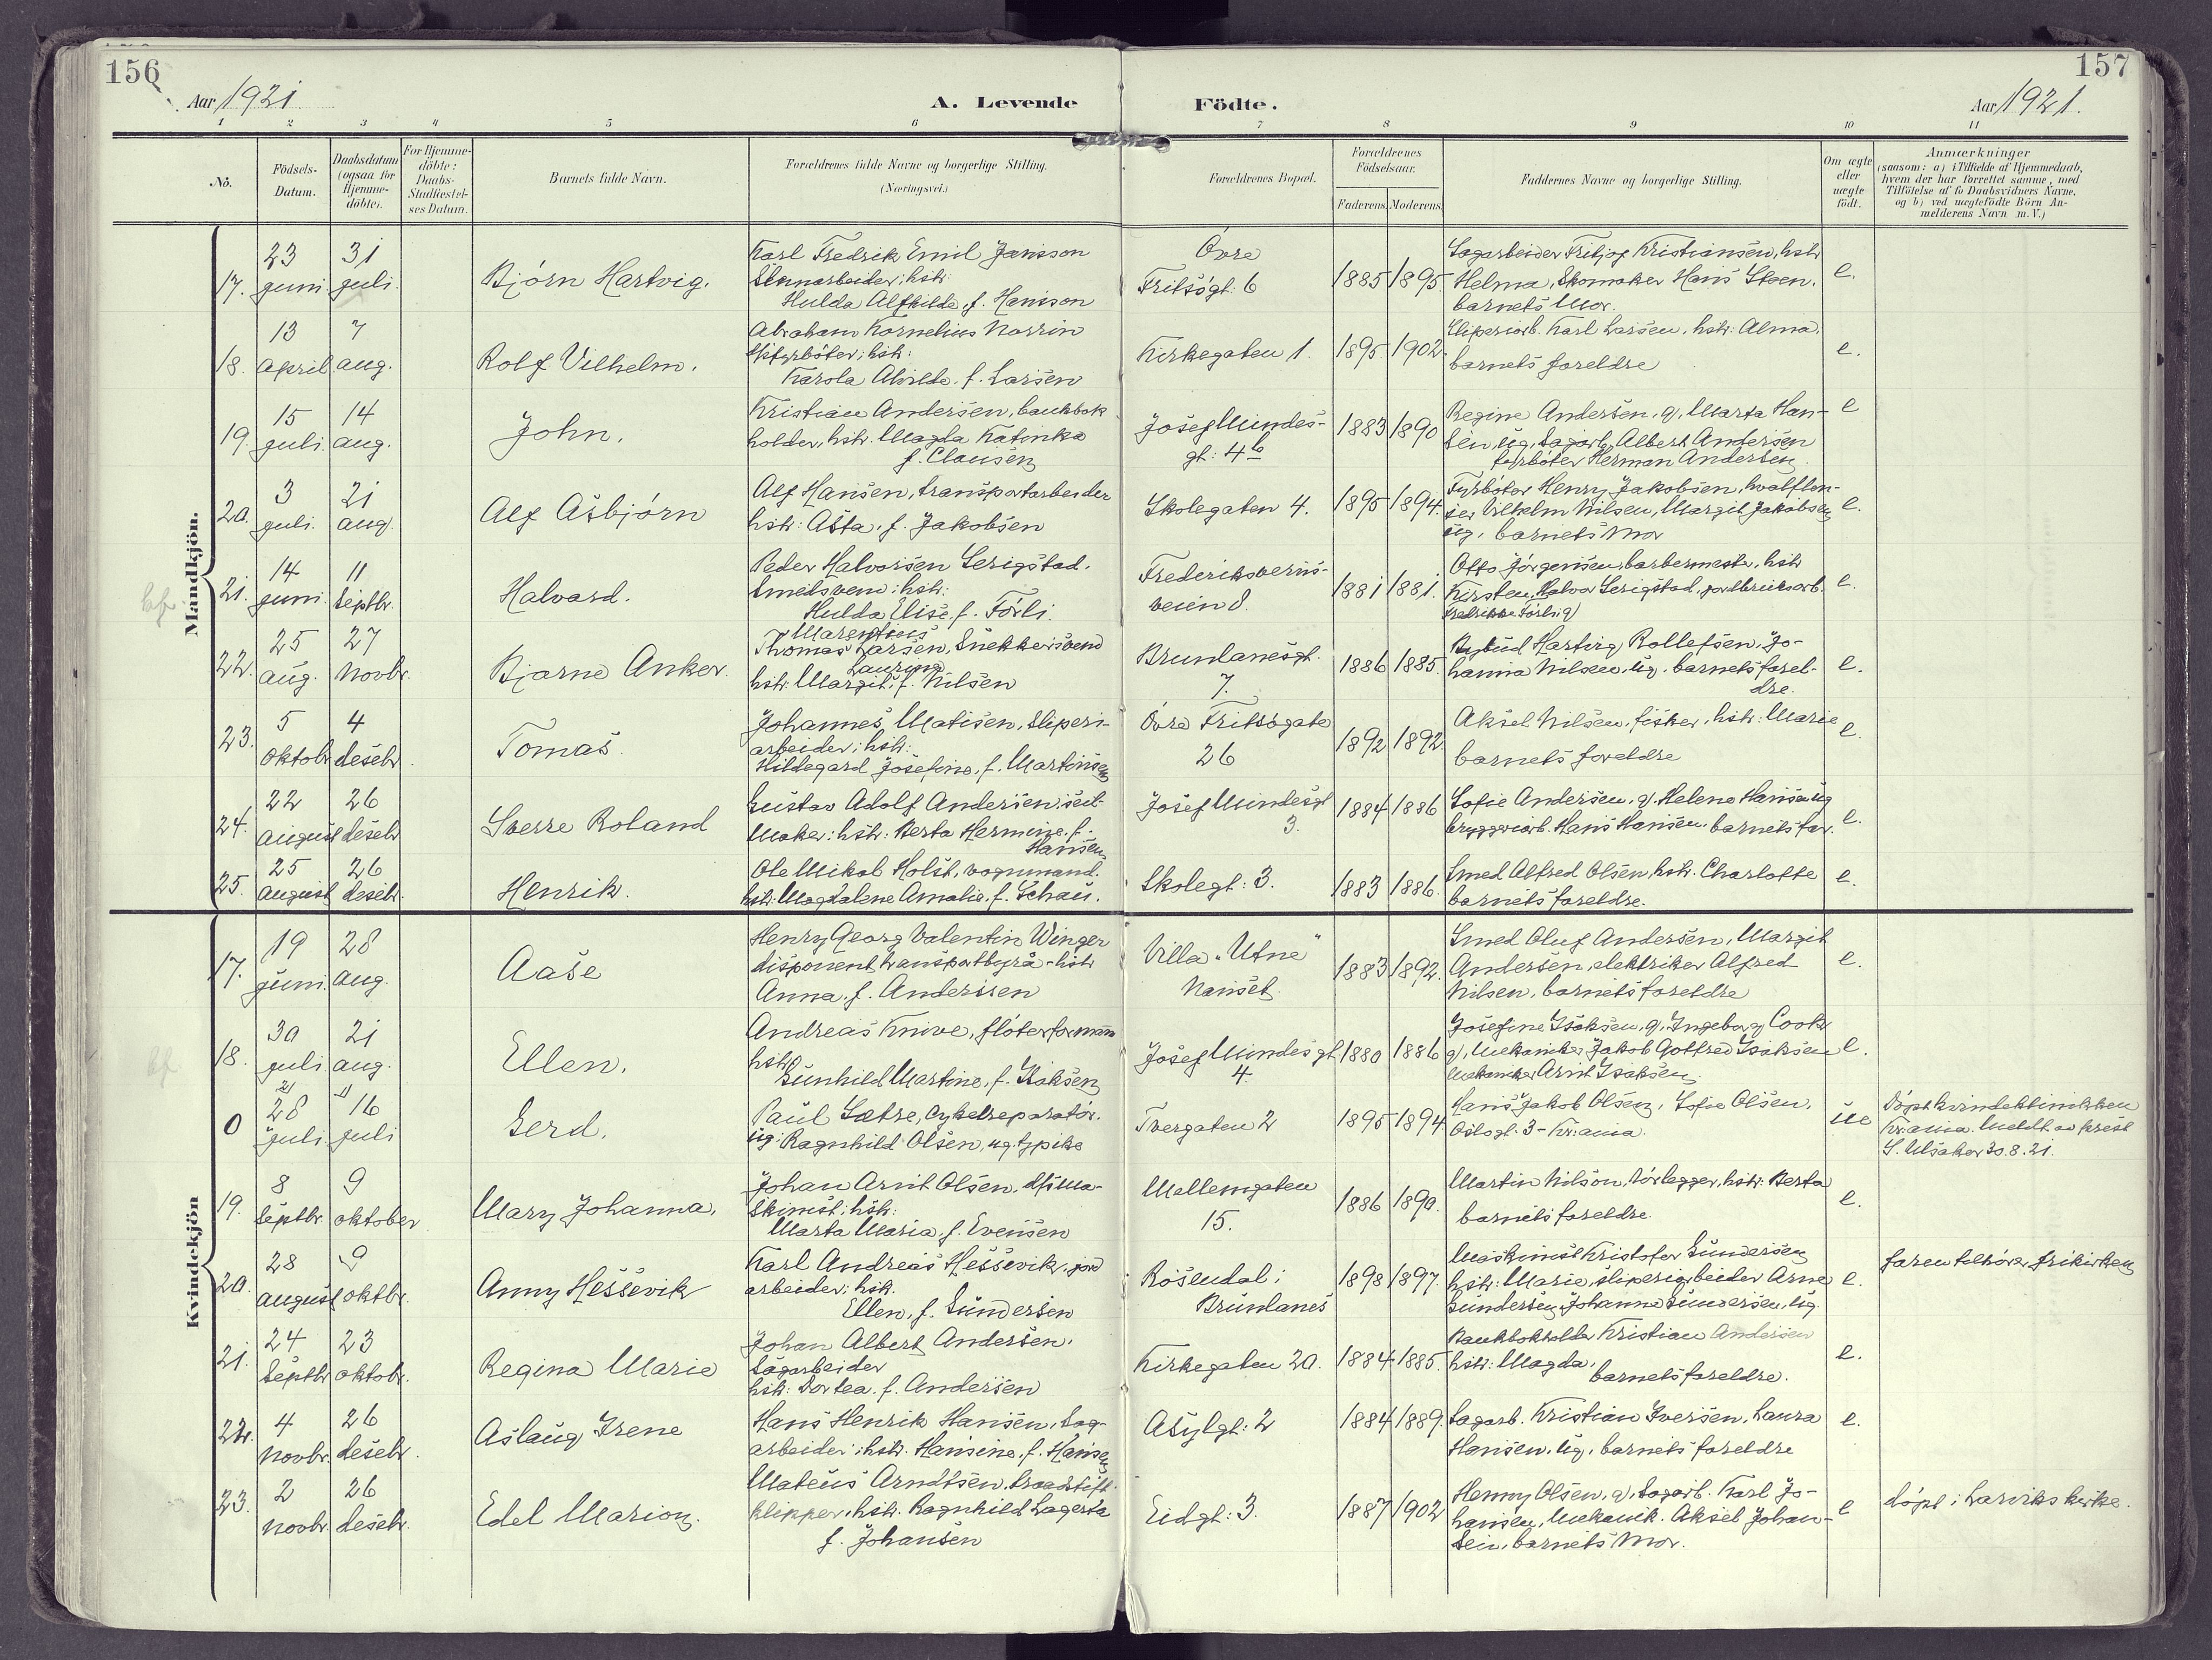 156
Aar 1921.
A. Levende
Födte.
Aar 1921.
157
1 2 3 4 5 6 7 8 9 10 11
No.
Födsels-
Datum.
Daabsdatum
(ogsaa for
Hjemme-
döbte).
For Hjemme-
döbte:
Daabs-
Stadfæstel-
ses Datum.
Barnets fulde Navn.
Forældrenes fulde Navne og borgerlige Stilling.
(Næringsvei.)
Forældrenes Bopæl.
Forældrenes
Födselsaar.
Faderens. Moderens.
Faddernes Navne og borgerlige Stilling.
Om ægte
eller
uægte
födt.
Anmærkninger
(saasom: a) i Tilfælde af Hjemmedaab,
hvem der har forrettet samme, med
Tilföielse af to Daabsvidners Navne,
og b) ved uægtefödte Börn An-
melderens Navn m. V.)
Mandkjön.
17.
23
juni
31
juli.
Bjørn Hartvig.
Karl Fredrik Emil Jansson
Stenarbeider; hstr:
Hulda Alfhilde, f. Hansson
Øvre
Fritsøgt: 6
1885 1895.
Sagarbeider Fritjof Kristiansen, hstr
Helma, Skomaker Hans Steen,
barnets Mor.
e.
18.
13
april
7
aug.
Rolf Vilhelm.
Abraham Kornelius Norrin
fyrbøter; hstr:
Karola Alvilde, f. Larsen
Kirkegaten 1.
1895 1902.
Sliperiarb. Karl Larsen, hstr: Alma,
barnets foreldre
e.
19.
15
juli.
14
aug.
John.
Kristian Andersen, bankbok
holder, hstr. Magda Katinka
f. Clausen
Josef Mindes-
gt: 4b
1883 1890
Regine Andersen, g, Marta Han-
sen, ug, Sagarb. Albert Andersen
fyrbøter Herman Andersen.
e
20.
3
juli.
21
aug.
Alf Asbjørn
Alf Hansen, transportarbeider
hstr: Asta, f. Jakobsen
Skolegaten 4.
1895 1894.
Fyrbøter Henry Jakobsen, hvalflen-
ser Vilhelm Nilsen, Margit Jakobsen
ug, barnets Mor
e.
21.
14
juni
11
Septbr.
Halvard.
Peder Halvorsen Serigstad.
Smedsvend; hstr:
Hulda Elise f. Førli.
Frederiksverns-
veien 8.
1881 1881.
Otto Jørgensen, barbermester, hstr
Kirsten, Halvor Serigstad, jordbruksarb.
Fredrikke Førli g)
e.
22.
25
aug.
27
Novbr.
Bjarne Anker.
Marentius
Thomas Larsen, Snekkersvend
Laurina
hstr: Margit, f. Nilsen
Brunlanesgt.
7.
1886 1885.
Bybud Hartvig Rollefsen, Jo-
hanna Nilsen, ug. barnets forel-
dre.
e.
23.
5
oktobr
4
desebr.
Tomas.
Johannes Matisen, Sliperi-
arbeider; hstr:
Hildegard Josefine, f. Martinsen
Øvre Fritsøgate
26
1892 1892.
Aksel Nilsen, fisker, hstr: Marie
barnets foreldre
e.
24.
22
august
26
desebr
Sverre Roland
Gustav Adolf Andersen, seil-
maker: hstr: Berta Hermine, f.
Hansen
Josef Mindesgt
3.
1884 1886
Sofie Andersen, g, Helene Hansen ug
bryggeriarb. Hans Hansen, barnets far.
e.
25.
25
august
26
desebr.
Henrik.
Ole Mikal Holst, vognmand.
hstr: Magdalene Amalie, f. Schau.
Skolegt: 3.
1883 1886.
Smed Alfred Olsen, hstr. Charlotte
barnets foreldre.
e.
Kvindekjön
17.
19
juni.
28
aug.
Aase
Henry Georg Valentin Winger
disponent transportbyrå - hstr
Anna, f. Andersen
Villa "Utne"
Nanset.
1883 1892.
Smed Oluf Andersen, Margit
Andersen, elektriker Alfred
Nilsen, barnets foreldre
e.
18.
30
juli
21
aug.
Ellen.
Andreas Knive, fløterformann
hstr:
Gunhild Martine, f. Isaksen
Josef Mindesgt
4.
1880 1886
Josefine Isaksen, g, Ingeborg Cook
g), Mekaniker Jakob Gotfred Isaksen
Mekaniker Arnt Isaksen.
e.
0
28
juli
16
juli
Gerd.
Paul Sætre, Cykelreparatør.
ug: Ragnhild Olsen, ug. tjpike
Tvergaten 2
1895 1894
Hans Jakob Olsen, Sofie Olsen,
Oslogt. 3 - Kr:ania.
ue
Døpt kvindeklinikken
Kr.ania. Meldt av prest
30.8.21.
19.
8
Septbr.
9
oktober
Mary Johanna.
Johan Arnt Olsen,
skinist; hstr:
Marta Maria, f. Evensen
Mellemgaten
15.
1886 1890.
Martin Nilson, rørlegger, hstr: Berta
barnets foreldre.
e.
20.
28
august
9
oktbr.
Anny Hessevik
Karl Andreas Hessevik, jord
arbeider; hstr.
Ellen, f. Gundersen
Rosendal i
Brunlanes
1898 1897.
Maskinist Kristofer Gundersen
hstr: Marie, sliperiarbeider Arne
Gundersen, Johanne Gundersen, ug.
e.
faren tilhører frikirken
21.
24
Septbr
23
oktobr.
Regina Marie
Johan Albert Andersen.
Sagarbeider
hstr: Dortea, f. Andersen
Kirkegaten 20.
1884 1885.
Bankbokholder Kristian Andersen
hstr: Magda,
barnets foreldre.
e.
22.
4
Novbr.
26
desebr.
Aslaug Irene
Hans Henrik Hansen, Sag-
arbeider; hstr. Hansine, f. Hansen
Asylgt: 2
1884 1889.
Sagarb. Kristian Iversen, Laura
Hansen, ug, barnets foreldre
e.
23.
2
Novbr.
26
desebr.
Edel Marion.
Mateus Arndtsen, traadstift-
klipper, hstr. Ragnhild Lagerta
f. Johansen
Eidgt: 3.
1887 1902
Henny Olsen, g, Sagarb. Karl Jo-
hansen, Mekanik. Aksel Johan-
sen, barnets Mor.
e
døpt i Larviks kirke.